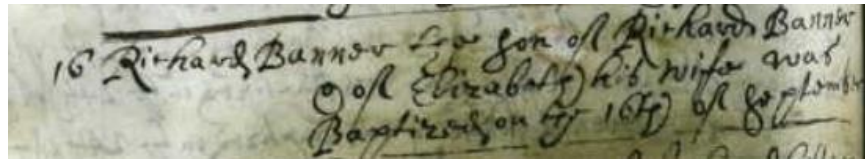 16 Richard Banner the son of Richard Banner
& of Elizabeth his wife was
Baptized on the 16th of September